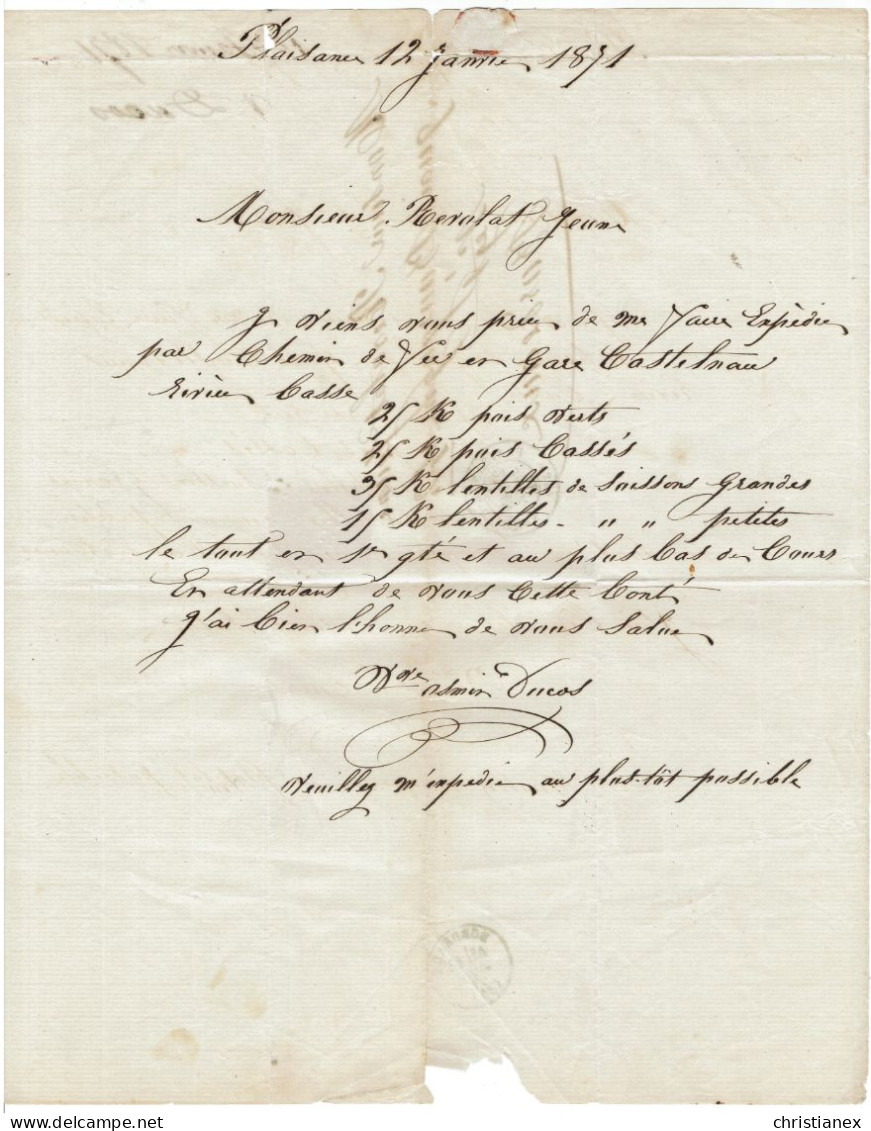 Plaisance 12 Janvier 1871
Monsieur Revalat Jeune
Je viens vous prier de me faire Expédier
par Chemin de Fer en Gare Castelnau
Rivière Basse
25 K pois verts
25 K pois Cassés
35 K lentilles de Soissons Grandes
15 K lentilles - " " petites
le tout en 1re qté et au plus bas du Cours
En attendant de vous Cette bonté
J'ai bien l'honneur de vous Saluer
Ducos
veuillez m'expédier au plus-tôt possible
christianex